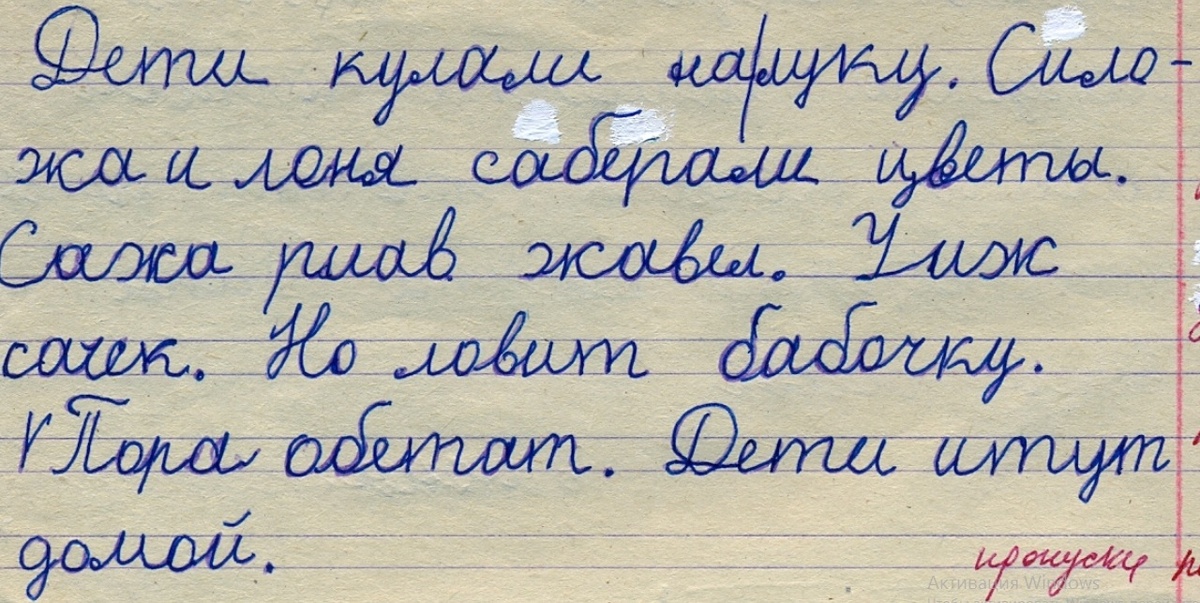 Дети кулали на|луку. Сило-
жа и лоня саберали цветы.
Сажа рлав жавел. У иж
сачек. Но ловит бабочку.
√ Пора обетат. Дети итут
домой.
пропуски
Активация Windows